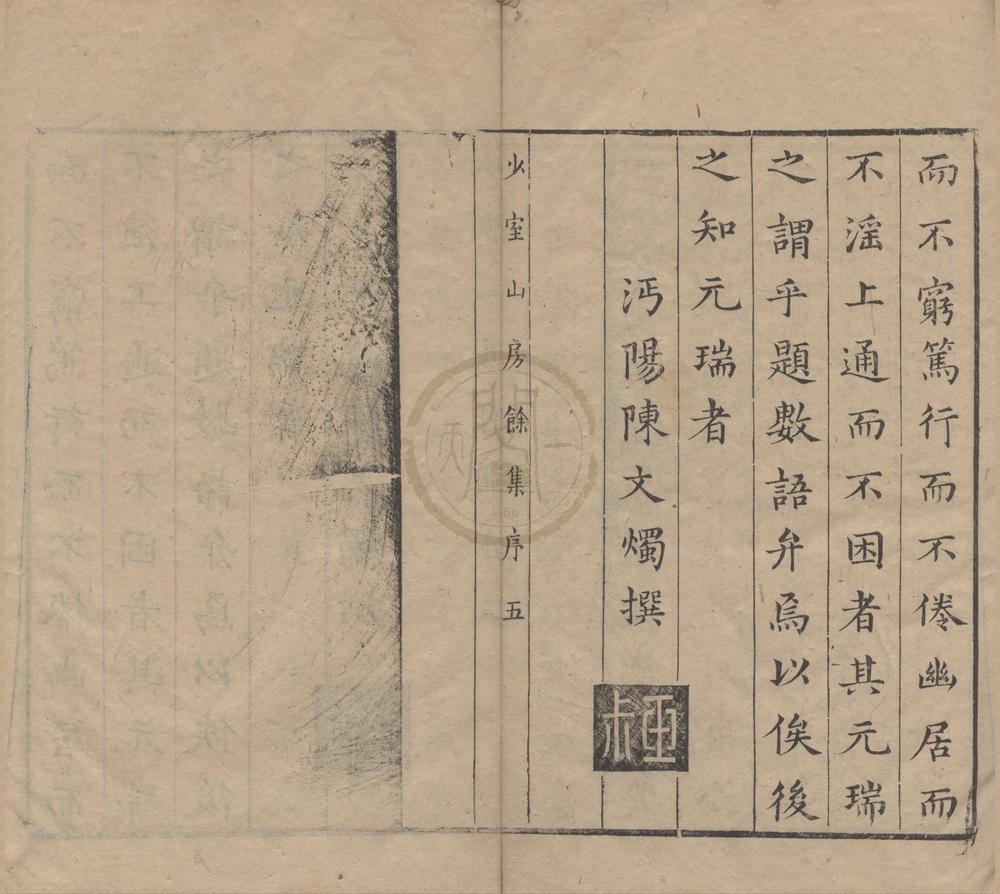 而不窮篤行而不倦幽居而
不淫上通而不困者其元瑞
之謂乎題數語弁焉以俟後
之知元瑞者
沔陽陳文燭撰
少室山房餘集序 五